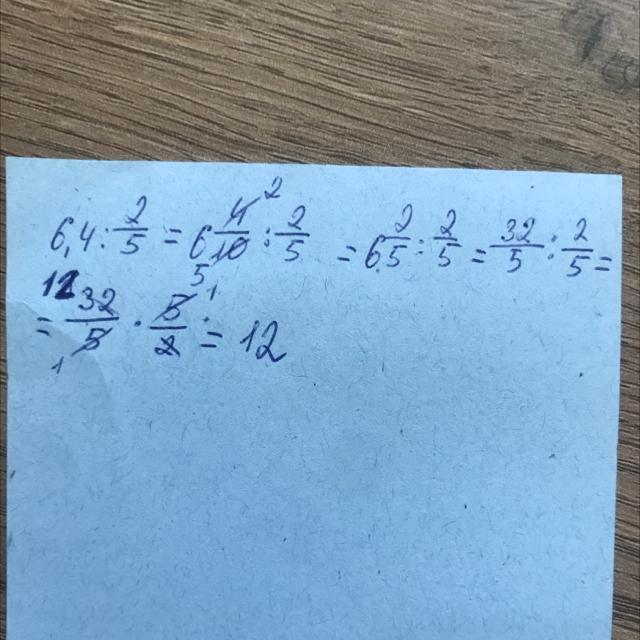 6,4 : 2/5 = 6 4/10 : 2/5 = 6 2/5 : 2/5 = 32/5 : 2/5 =
= 32/5 · 5/2 = 12